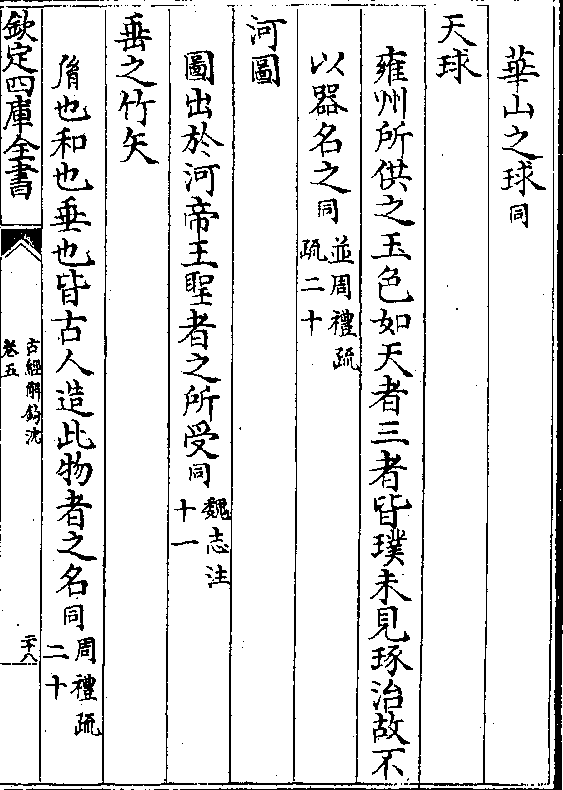 華山之球同
天球
雍州所供之玉色如天者三者皆璞未見琢治故不
以器名之同並周禮疏
疏二十
河圖
圖出於河帝王聖者之所受同魏志注
十一
垂之竹矢
胤也和也垂也皆古人造此物者之名同周禮疏
二十
欽定四庫全書
古經解鉤沈
卷五
二十八